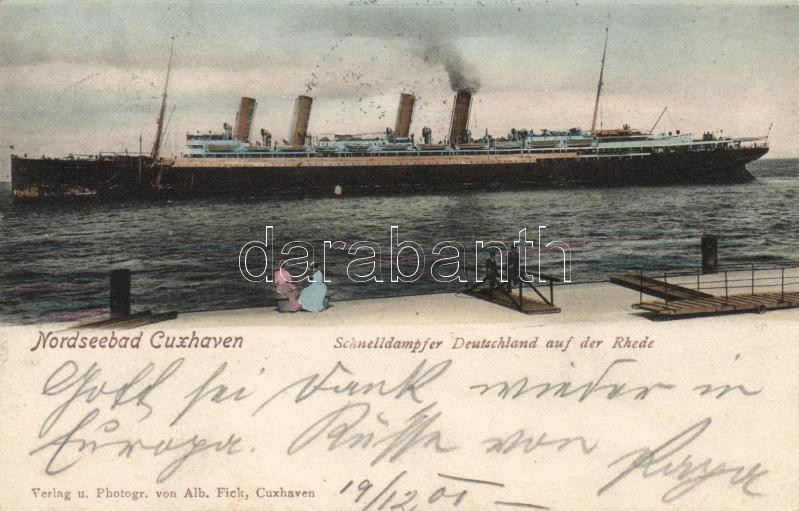 darabanth
Nordseebad Cuxhaven
Schnelldampfer Deutschland auf der Rhede
Gott sei Dank wieder in
Europa. Küsse von
Verlag u. Photogr. von Alb. Fick, Cuxhaven
19/12 01